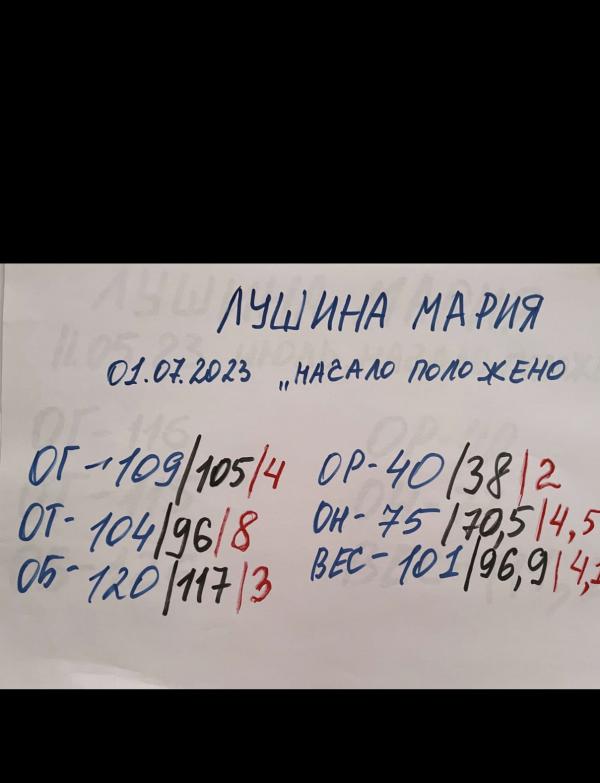 ЛУШИНА МАРИЯ
01.07.2023 „НАЧАЛО ПОЛОЖЕНО
ОГ-109/105/4 ОР-40/38/2
ОТ-104/96/8 ОН-75/70,5/4,5
ОБ-120/117/3 ВЕС-101/96,9/4,1